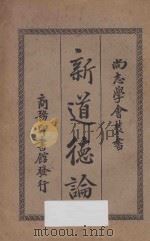 尚志學會叢書
新道德論
商務印書館發行